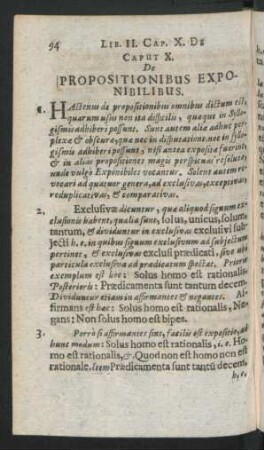 94 LIB. II. CAP. X. DE
CAPUT X.
De
PROPOSITIONIBUS EXPO-
NIBILIBUS.
1. HActenus de propositionibus omnibus dictum est,
quarum usus non ita difficilis, quæque in Syllo-
gismis adhiberi possunt. Sunt autem aliæ adhuc per-
plexæ & obscuræ, quæ nec in disputatione nec in syllo-
gismis adhiberi possunt, nisi antea expositæ fuerint,
& in alias propositiones magis perspicuas resolutæ,
unde vulgò Exponibiles vocantur. Solent autem re-
vocari ad quatuor genera, ad exclusivas, exceptivas,
reduplicativas, & comparativas.
2. Exclusivæ dicuntur, quæ aliquod signum ex-
clusionis habent, qualia sunt, solus, unicus, solum,
tantum, & dividuntur in exclusivas exclusivi sub-
jecti h. e. in quibus signum exclusivum ad subjectum
pertinet, & exclusivas exclusi prædicati, sive
particula exclusiva ad prædicatum spectat. Prioris
exemplum est hoc: Solus homo est rationalis.
Posterioris: Prædicamenta sunt tantum decem.
Dividuntur etiam in affirmantes & negantes. Af-
firmans est hæc: Solus homo est rationalis, Ne-
gans: Non solus homo est bipes.
3. Porrò si affirmantes sint, facilis est expositio, ad
hunc modum: Solus homo est rationalis, i. e. Ho-
mo est rationalis, &. Quod non est homo non est
rationale. Item Prædicamenta sunt tantũ decem,
h. e.